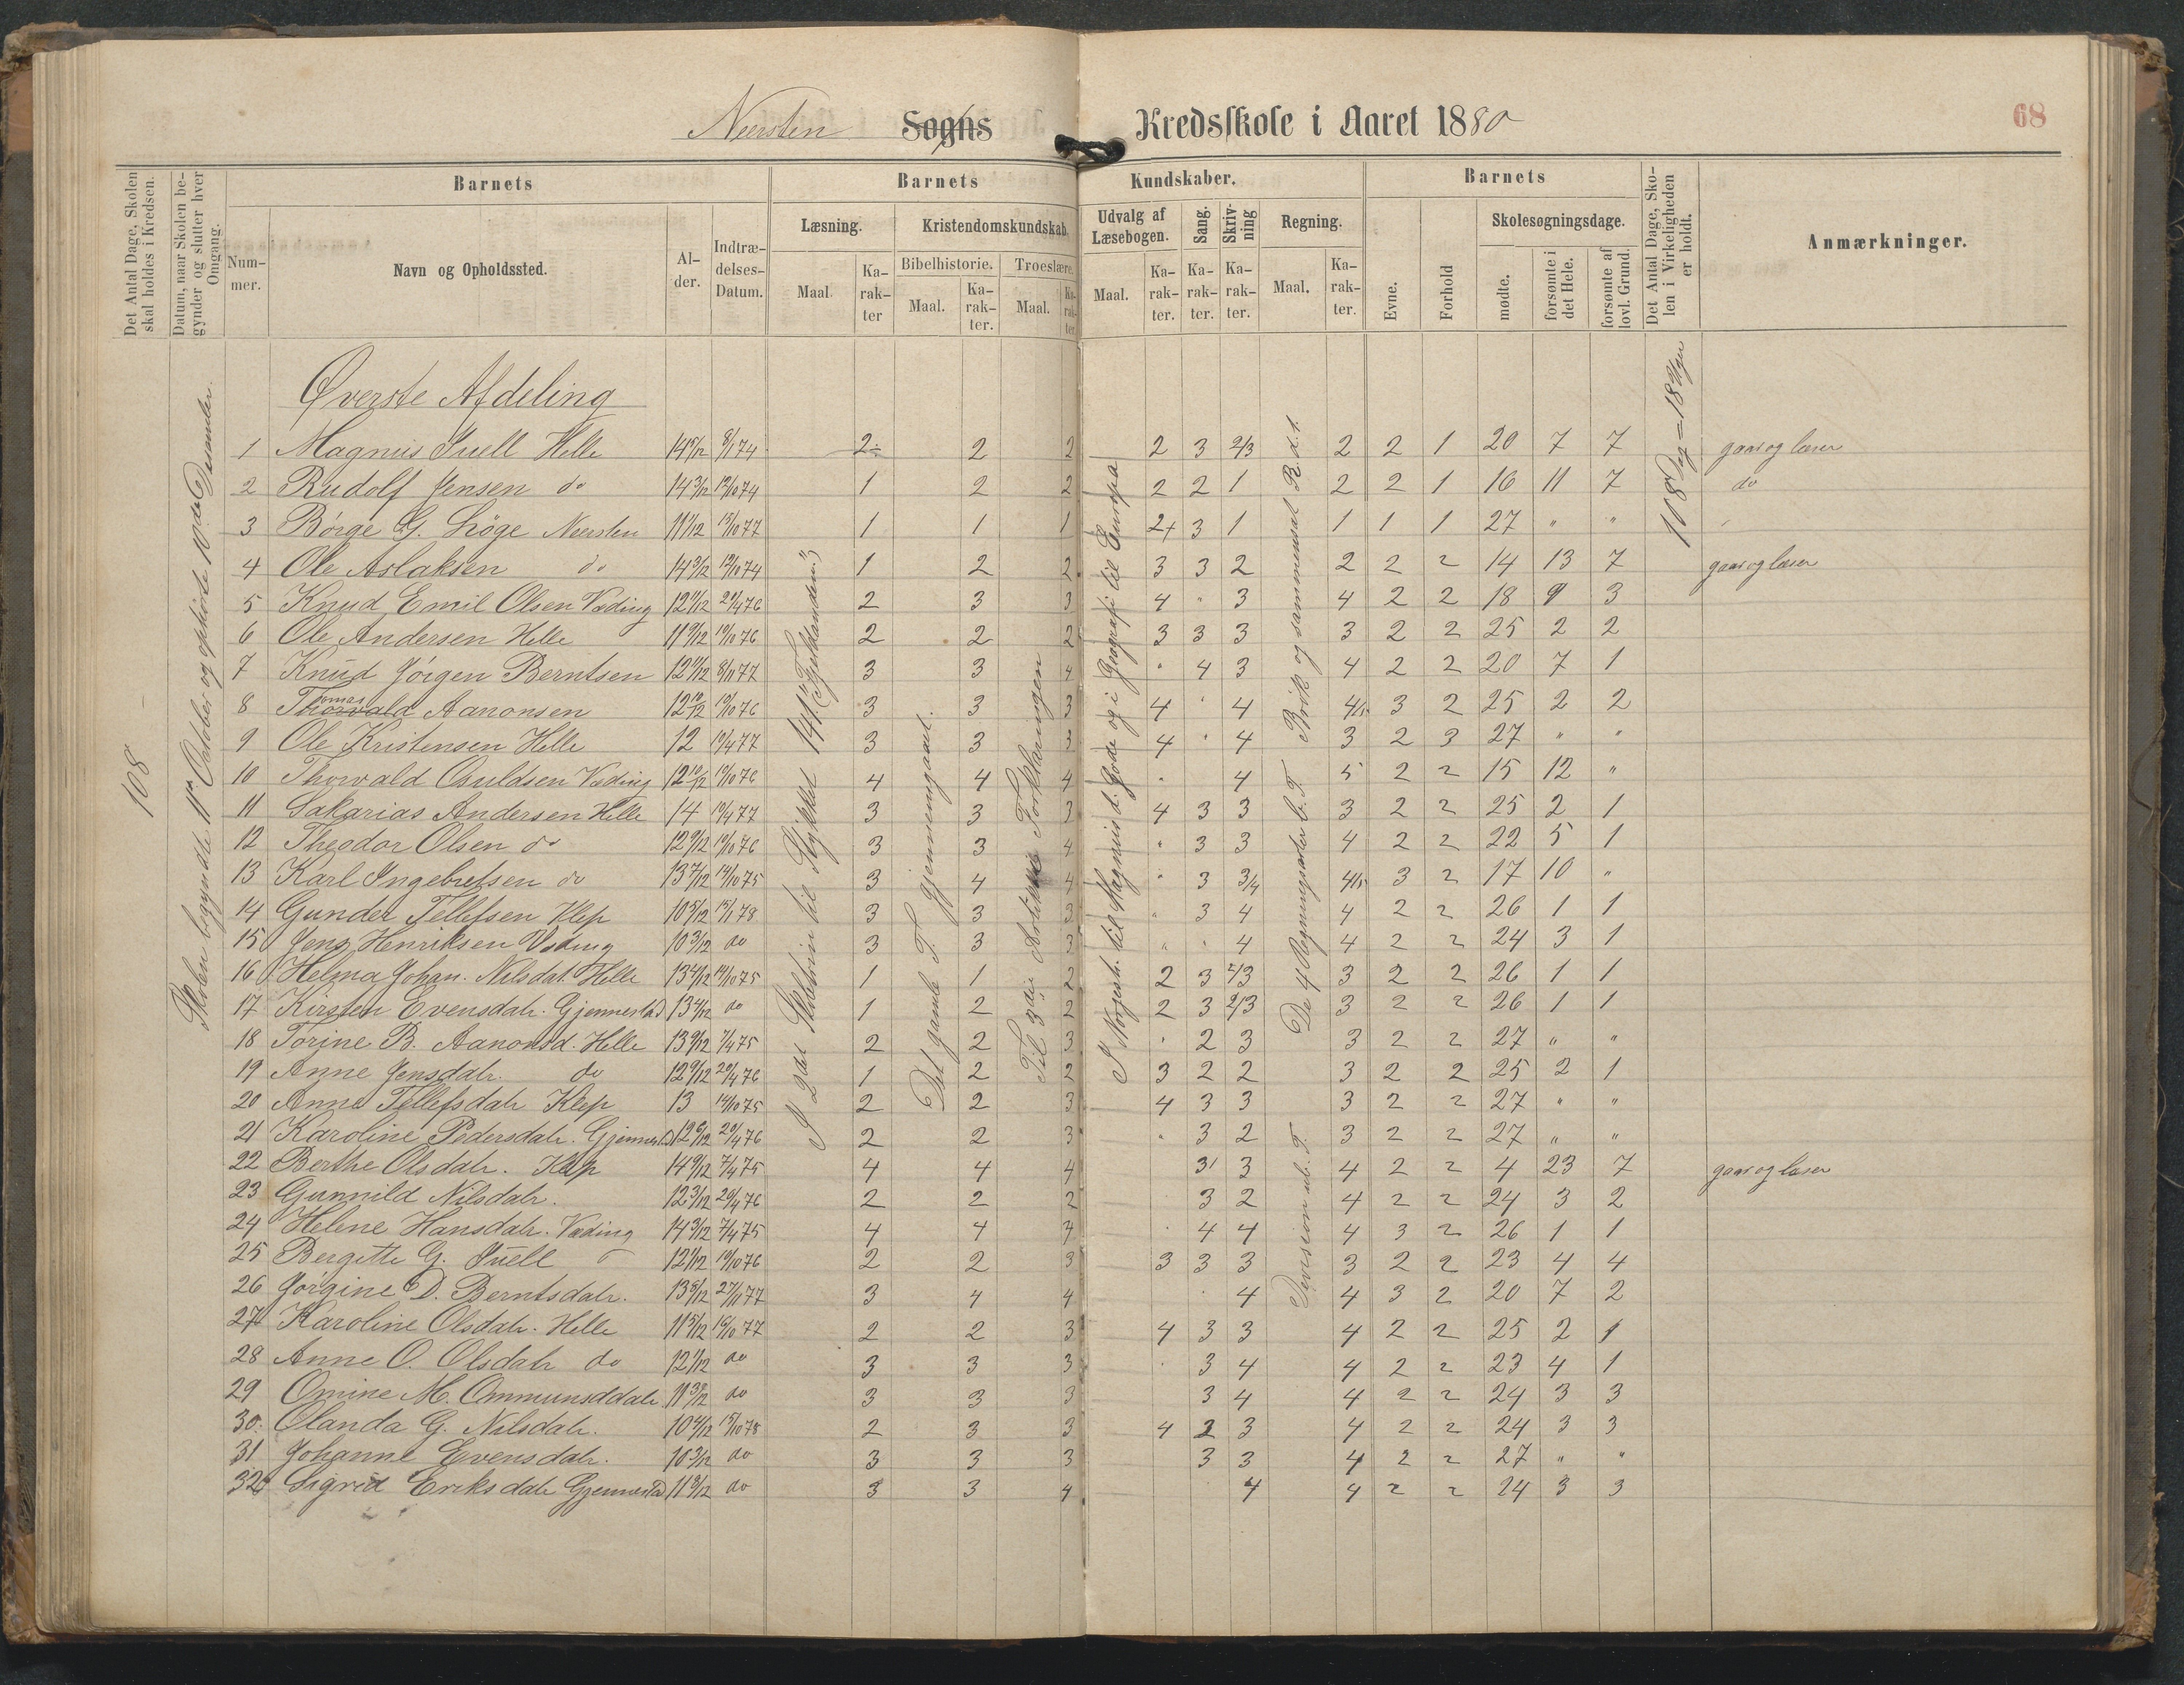 Neersten Sogns Kredsskole i Aaret 1880
68
Det Antal Dage, Skolen skal holdes i Kredsen.
Datum, naar Skolen begynder og slutter hver Omgang.
Barnets
Nummer.
Navn og Opholdssted.
Alder.
Indtrædelses-Datum.
Barnets Kundskaber.
Læsning.
Maal.
Karakter
Kristendomskundskab.
Bibelhistorie.
Maal.
Karakter.
Troeslære.
Maal.
Karakter
Udvalg af Læsebogen.
Maal.
Karakter.
Sang.
Karakter.
Skrivning
Karakter.
Regning.
Maal.
Karakter.
Barnets
Evne.
Forhold
Skolesøgningsdage.
mødte.
forsømte i det Hele.
forsømte af lovl. Grund.
Det Antal Dage, Skolen i Virkeligheden er holdt.
Anmærkninger.
108
Skolen begyndte 11te October og ophørte 10de December.
Øverste Afdeling
I 2det Skoletrin til Stykket 141
Det gamle T. gjennemgaaet.
Til 3die Artikel Forklaringen
I Norgesh. til Magnus d. Gode og i Geografi til Europa
De 4 Regningsarter b. T. Brøk og sammensat R. d. t.
Division ub. T.
108 Dag = 18 Uger
1 Magnus Juell Helle 14 5/12 8/1 74 2 2 2 2 3 2/3 2 2 1 20 7 7 gaar og læser
2 Rudolf Jensen do 14 3/12 12/10 74 1 2 2 2 2 1 2 2 1 16 11 7 do
3 Børge G. Løge Neersten 11 1/12 15/10 77 1 1 1 2+ 3 1 1 1 1 27 " "
4 Ole Aslaksen do 14 3/12 12/10 74 1 2 2 3 3 2 2 2 2 14 13 7 gaar og læser
5 Knud Emil Olsen Væding 12 11/12 29/4 76 2 3 3 4 " 3 4 2 2 18 9 3
6 Ole Andersen Helle 11 9/12 19/10 76 2 2 2 3 3 3 3 2 2 25 2 2
7 Knud Jørgen Berntsen 12 11/12 8/11 77 3 3 4 " 4 3 4 2 2 20 7 1
8 Thomas Aanonsen 12 10/12 19/10 76 3 3 3 4 " 4 4/5 3 2 25 2 2
9 Ole Kristensen Helle 12 19/4 77 3 3 3 4 " 4 3 2 3 27 " "
10 Thorvald Osuldsen Væding 12 10/12 19/10 76 4 4 4 " 4 5 2 2 15 12 "
11 Sakarias Andersen Helle 14 19/4 77 3 3 3 4 3 3 3 2 2 25 2 1
12 Theodor Olsen do 12 9/12 19/10 76 3 3 4 " 3 3 4 2 2 22 5 1
13 Karl Ingebretsen do 13 7/12 14/10 75 3 4 4 " 3 3/4 4/5 3 2 17 10 "
14 Gunder Tellefsen Klep 10 5/12 15/1 78 3 3 3 " 3 4 4 2 2 26 1 1
15 Jens Henriksen Væding 10 3/12 do 3 3 3 " " 4 4 2 2 24 3 1
16 Helma Johan. Nilsdat. Helle 13 4/12 14/10 75 1 1 2 2 3 2/3 3 2 2 26 1 1
17 Kirsten Evensdatr. Gjennestad 13 4/12 do 1 2 2 2 3 2/3 3 2 2 26 1 1
18 Torine B. Aanonsd. Helle 13 9/12 7/4 75 2 2 3 " 2 3 3 2 2 27 " "
19 Anne Jensdatr. do 12 9/12 29/4 76 1 2 2 3 2 2 3 2 2 25 2 1
20 Anne Tellefsdatr Klep 13 14/10 75 2 2 3 4 3 3 3 2 2 27 " "
21 Karoline Pedersdatr. Gjennestad 12 6/12 29/4 76 2 2 3 " 3 2 3 2 2 27 " "
22 Berthe Olsdatr. Klep 14 9/12 7/4 75 4 4 4 3 3 4 2 2 4 23 7 gaar og læser
23 Gunnild Nilsdatr. 12 3/12 29/4 76 2 2 2 3 2 4 2 2 24 3 2
24 Helene Hansdatr. Væding 14 3/12 7/4 75 4 4 4 " 4 4 4 3 2 26 1 1
25 Bergitte G. Juell do 12 1/12 19/10 76 2 2 3 3 3 3 3 2 2 23 4 4
26 Jørgine D. Berntsdatr. 13 8/12 27/11 77 3 4 4 " 4 4 3 2 20 7 2
27 Karoline Olsdatr. Helle 11 5/12 16/10 77 2 2 3 4 3 3 4 2 2 25 2 1
28 Anne O. Olsdatr do 12 1/12 do 3 3 3 " 3 4 4 2 2 23 4 1
29 Omine M. Ommunsddatr 11 3/12 do 3 3 3 3 4 4 2 2 24 3 3
30. Olanda G. Nilsdatr. 10 4/12 15/10 78 2 3 3 4 2 3 4 2 2 24 3 3
31 Johanne Evensdatr. 10 3/12 do 3 3 3 3 3 4 2 2 27 " "
32 Sigrid Eriksdatr Gjennestad 11 8/12 do 3 3 4 4 4 2 2 24 3 3